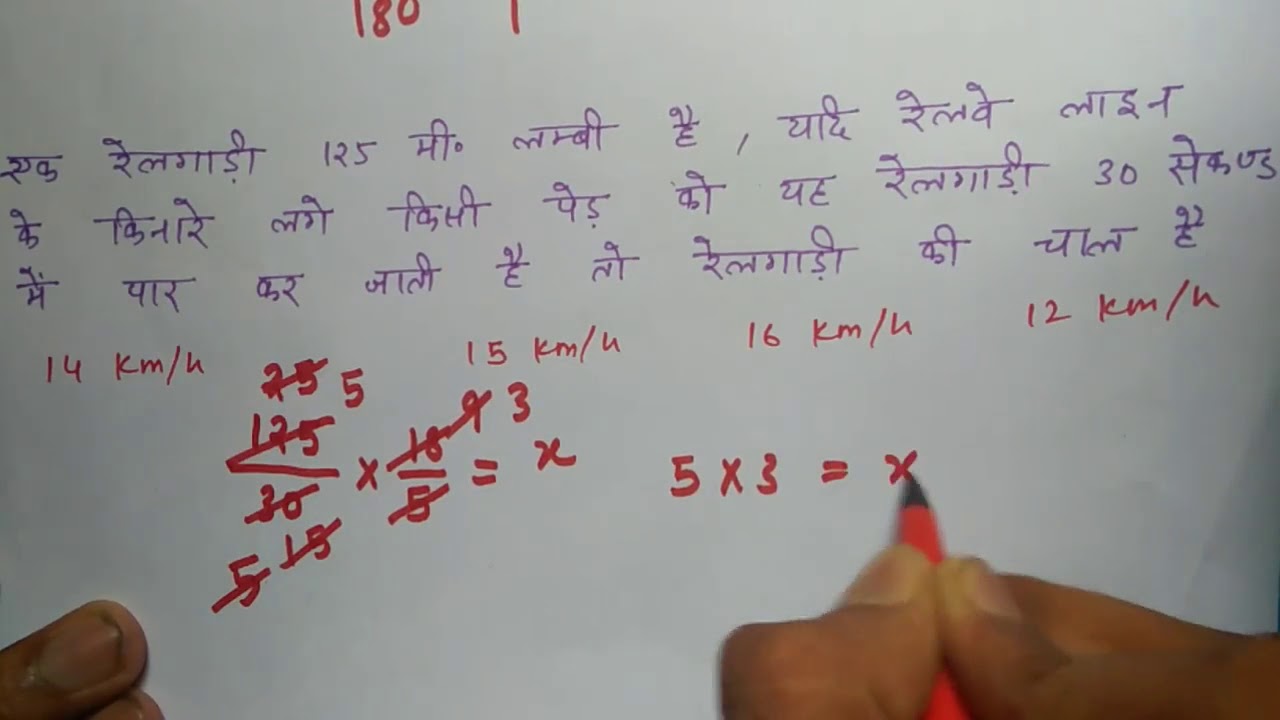 180 1
एक रेलगाड़ी 125 मी॰ लम्बी है , यदि रेलवे लाइन
के किनारे लगे किसी पेड़ को यह रेलगाड़ी 30 सेकण्ड
में पार कर जाती है तो रेलगाड़ी की चाल है
14 km/h 15 km/h 16 km/h 12 km/h
25 5
125 × 18 9 3 = x 5 × 3 = x
30 5
5 15